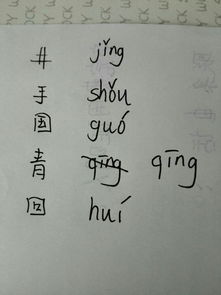 井 jǐng
手 shǒu
国 guó
青 qīng qīng
回 huí